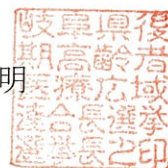 明
岐阜県後
期高齢者
医療広域
連合